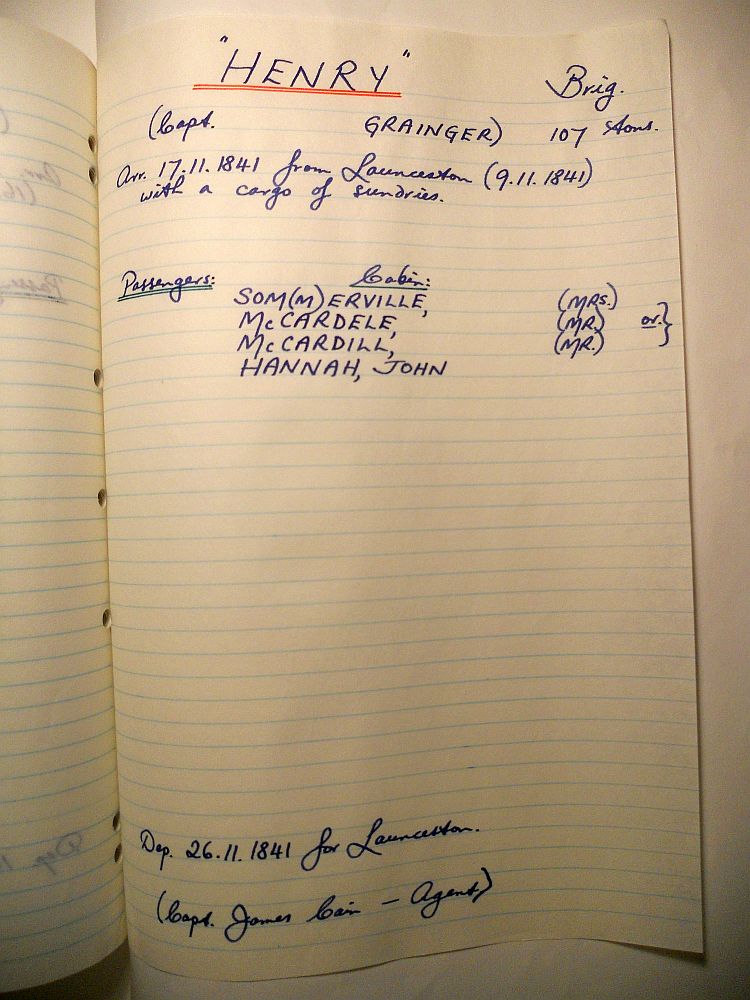 "HENRY" Brig.
(Capt. GRAINGER) 107 tons.
Arr. 17.11.1841 from Launceston (9.11.1841)
with a cargo of sundries.
Passengers: Cabin:
SOM(M)ERVILLE, (MRS.)
McCARDELE, (MR.) or.}
McCARDILL, (MR.)
HANNAH, JOHN
Dep. 26.11.1841 for Launceston.
(Capt. James Cain – Agent)